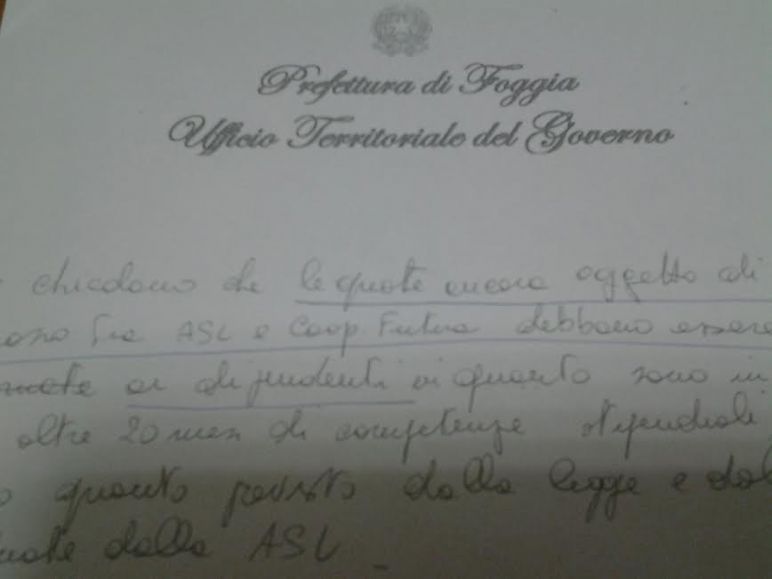 Prefettura di Foggia
Ufficio Territoriale del Governo
chiedono che le quote ancora oggetto di
tra ASL e Coop Futura debbano essere
ai dipendenti in quanto sono in
oltre 20 mesi di competenze stipendiali
quanto previsto dalla legge e dal
dalla ASL